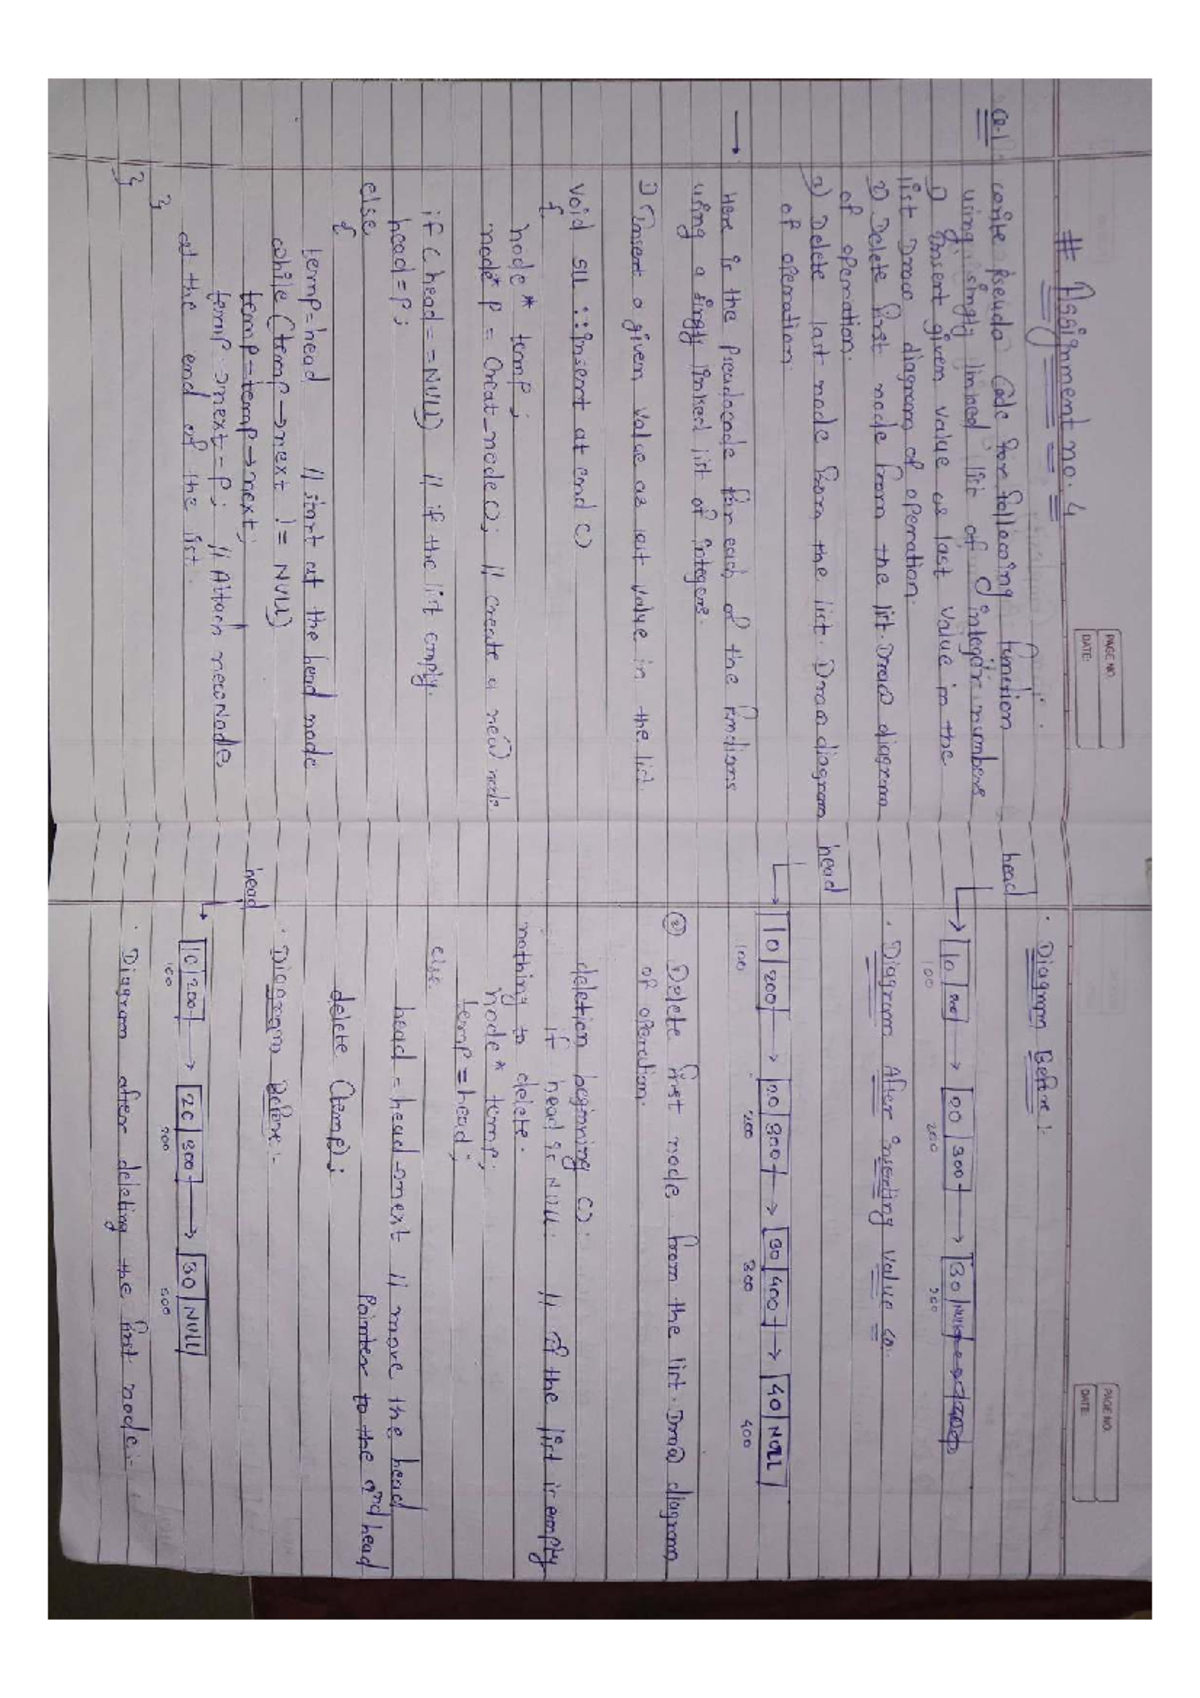 # Assignment no. 4
PAGE NO.
DATE:
Q.1 write Pseudo Code for following function
using singly linked list of integer numbers
1) Insert given value as last value in the
list Draw diagram of operation.
2) Delete first node from the list. Draw diagram
of operation.
3) Delete last node from the list. Draw diagram
of operation.
→ Here is the Pseudocode for each of the functions
using a singly linked list of integers.
1) Insert a given value as last value in the list.
void SLL :: insert at end ()
{
node* temp;
node* P = Creat_node(); // create a new node
if (head == NULL) // if the list empty.
head = P;
else
{
temp = head // start at the head node
while (temp → next != NULL)
temp = temp → next;
temp → next = P; // Attach newNode
at the end of the list.
}
}
PAGE NO.
DATE:
· Diagram Before :-
head
10 200 → 20 300 → 30 NULL
100 200 300
· Diagram After inserting value
head
10 200 → 20 300 → 30 400 → 40 NULL
100 200 300 400
② Delete first node from the list. Draw diagram
of operation.
deletion beginning ():
if head is NULL: // if the list is empty
nothing to delete.
node* temp;
temp = head;
else
head = head → next // move the head
Pointer to the 2nd head
delete (temp);
· Diagram Before :-
head
10 200 → 20 300 → 30 NULL
100 200 300
· Diagram after deleting the first node :-